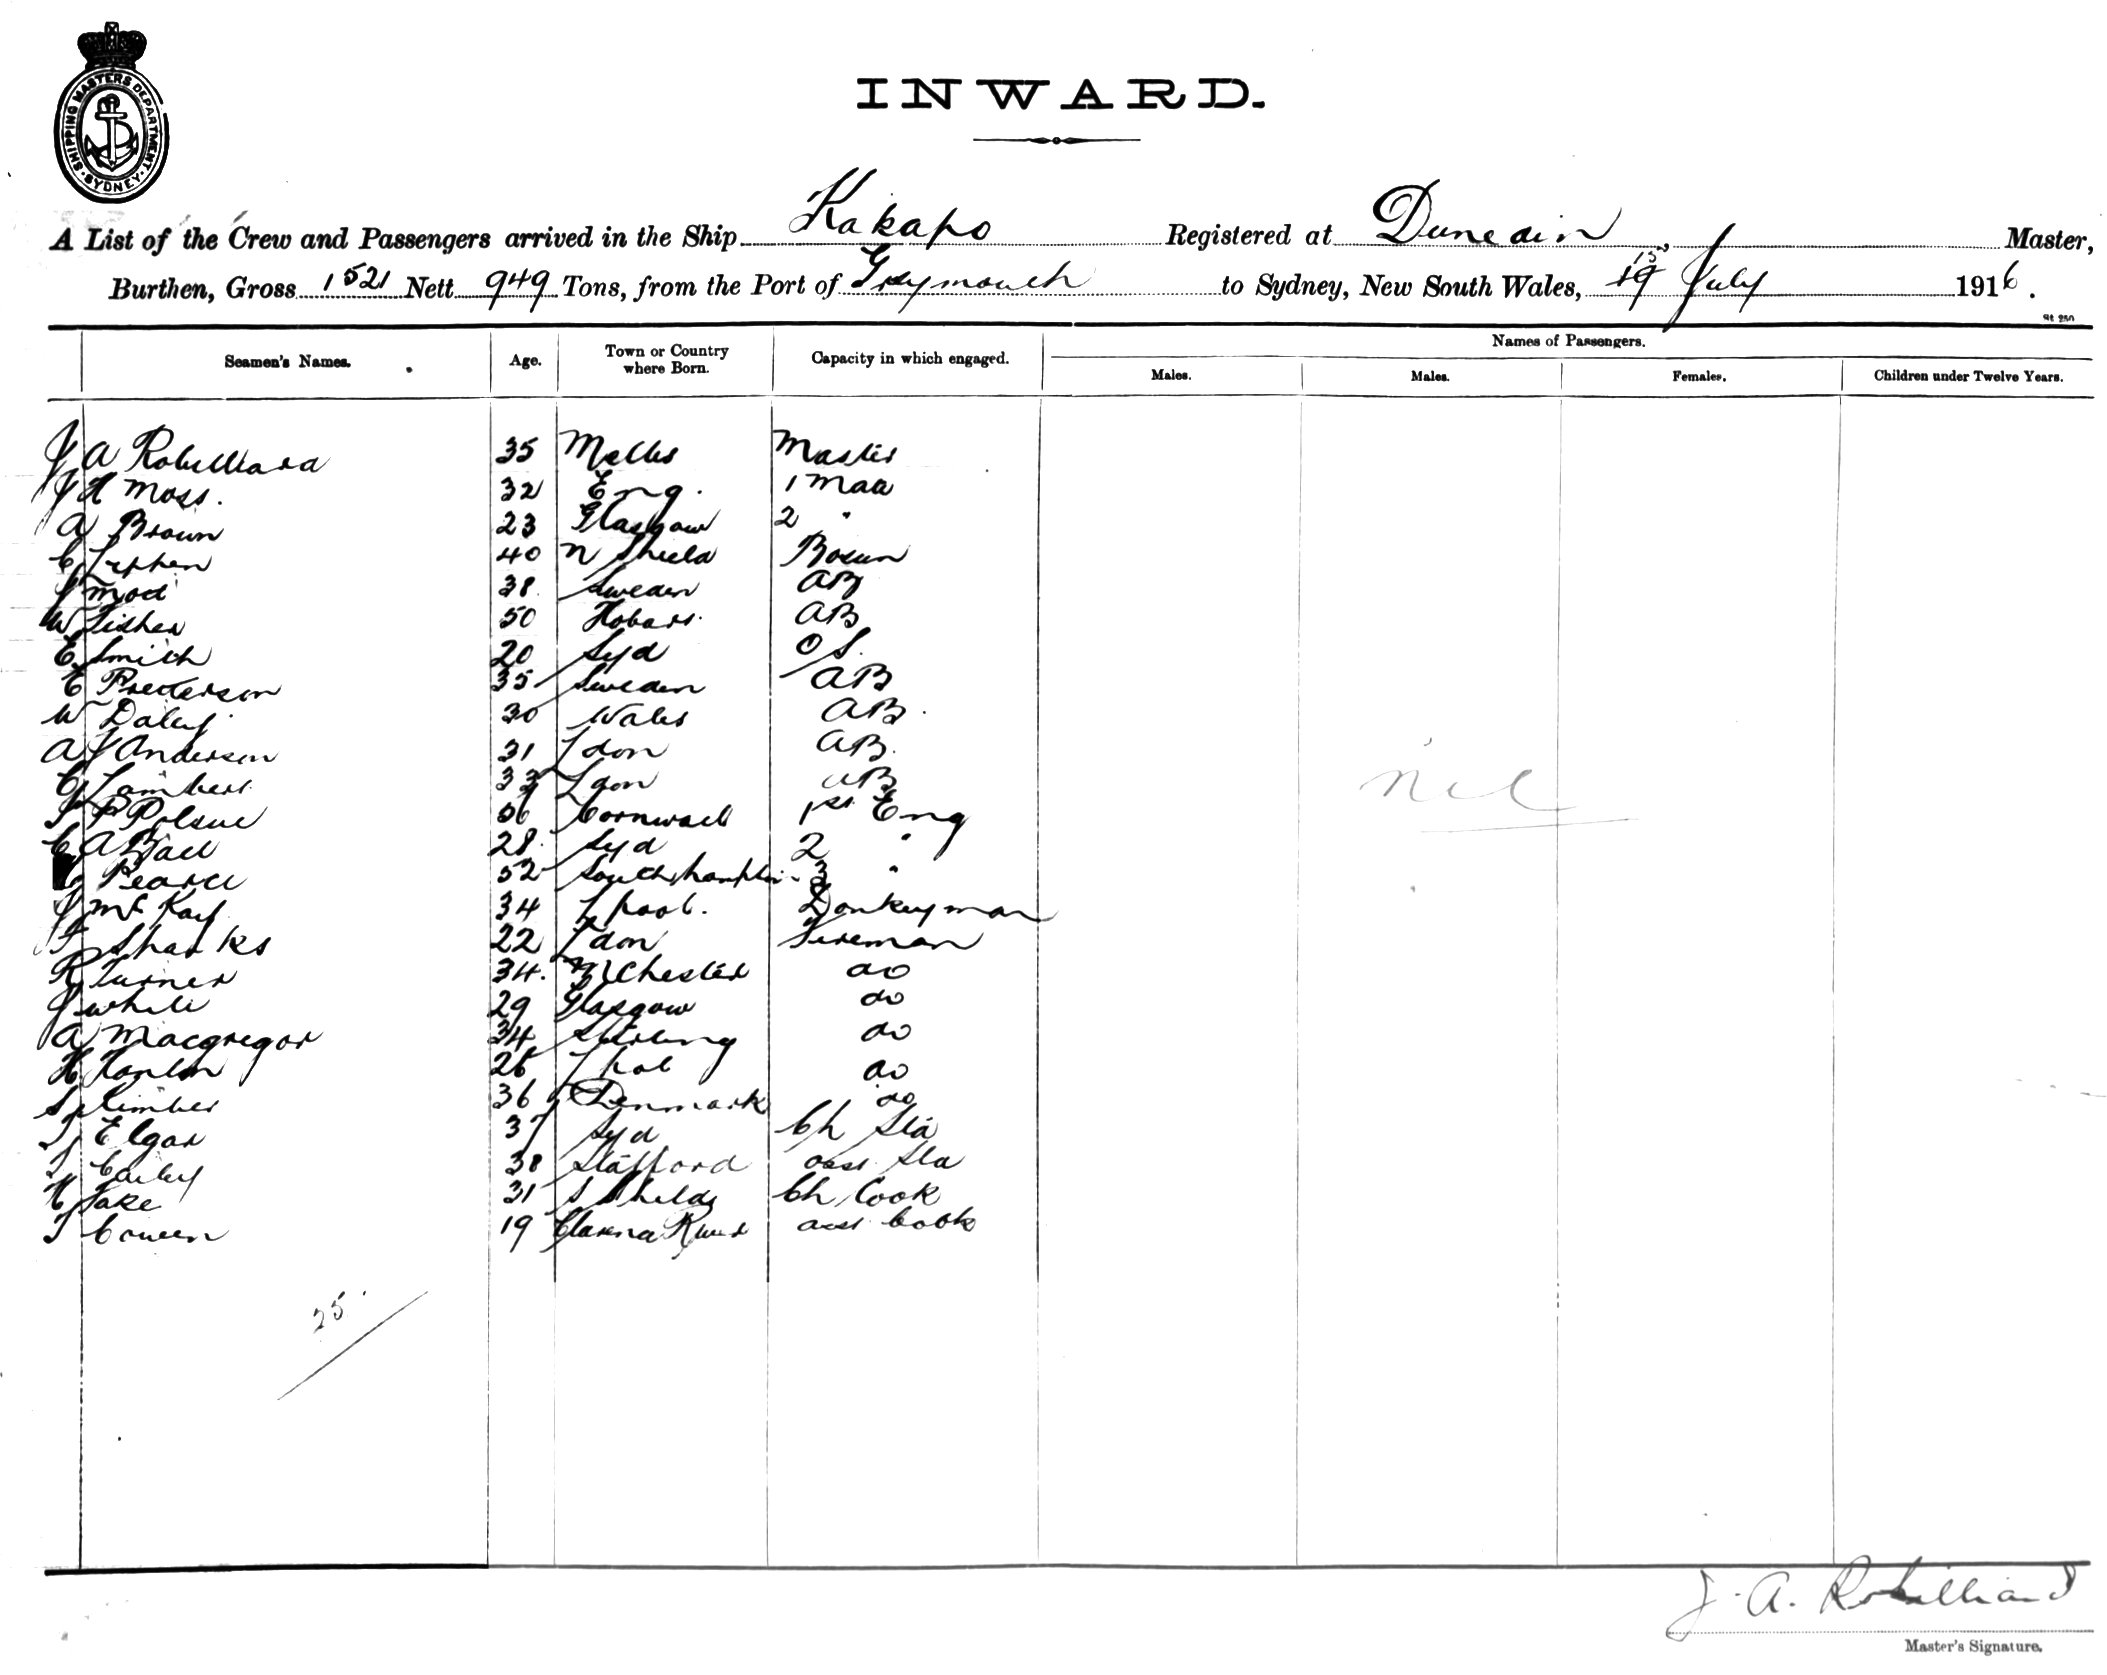 SHIPPING MASTERS DEPARTMENT. SYDNEY.
INWARD.
A List of the Crew and Passengers arrived in the Ship Kakapo Registered at Dunedin Master,
Burthen, Gross 1521 Nett 949 Tons, from the Port of Greymouth to Sydney, New South Wales, 15 July 1916.
St 250
Seamen's Names. Age. Town or Country where Born. Capacity in which engaged. Names of Passengers.
Males. Males. Females. Children under Twelve Years.
J A Robilliard 35 Melb Master
J H Moss. 32 Eng. 1 Mate
A Brown 23 Glasgow 2 "
C Stephen 40 N Shield Bosun
J 38 Sweden AB
W Fisher 50 Hobart. AB
E Smith 20 Syd OS.
E 35 Sweden AB
W Daley 30 Wales AB.
A J Anderson 31 Ldon AB.
C Lambert 33 Ldon AB
J P Polsue 56 Cornwall 1st Eng
C A Ball 28. Syd 2 "
Pearce 52 Southhampton 3 "
J McKay 34 Lpool. Donkeyman
F Sharks 22 Ldon Fireman
R Turner 34. MChester do
J White 29 Glasgow do
A Macgregor 34 Stirling do
H Hanlon Lpol do
S 36 Denmark do
T Elgar 37 Syd Ch Std
J 38 Stafford asst Std
H Jake 31 S Shields Ch Cook
T 19 Clarence River asst Cook
nil
25.
J. A. Robilliard
Master's Signature.